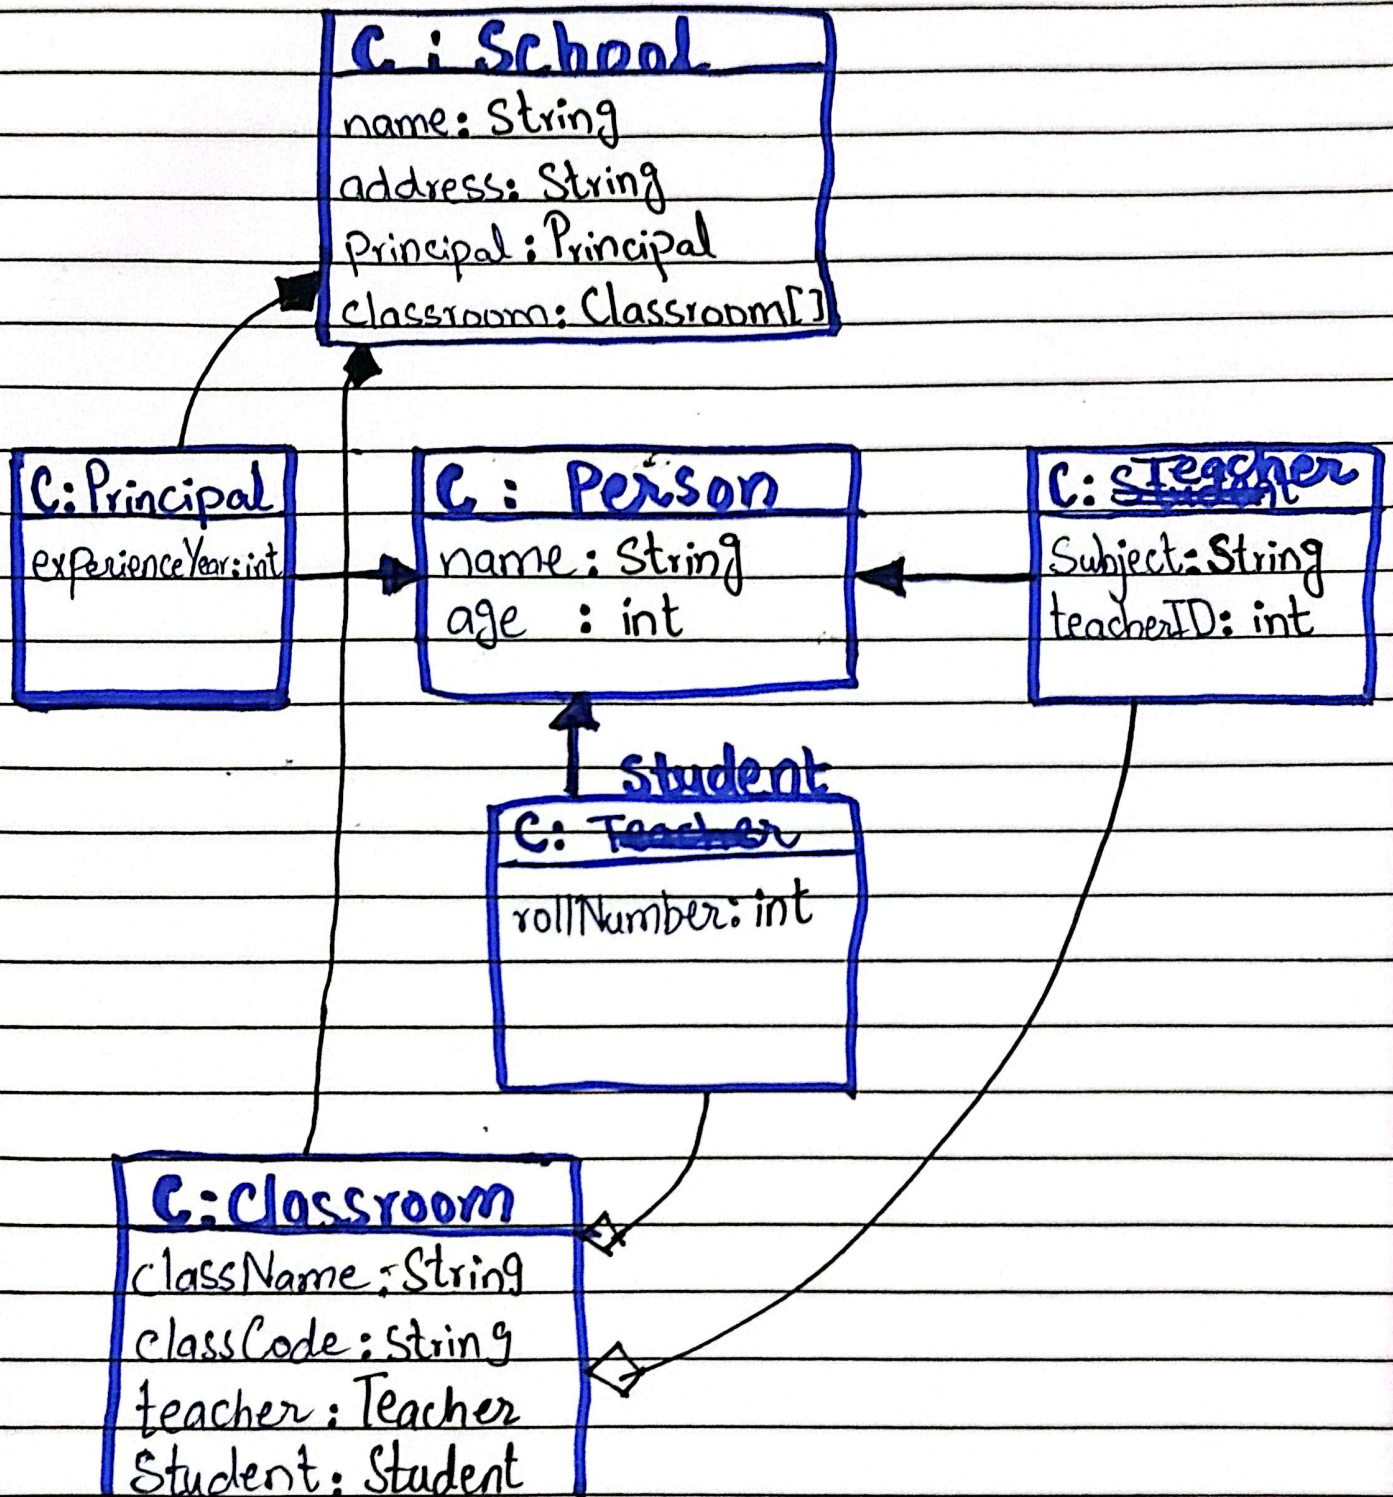 C : School
name: String
address: String
principal: Principal
classroom: Classroom[]
C: Principal
experienceYear: int
C : Person
name: String
age : int
C: Student Teacher
Subject: String
teacherID: int
Student
C: Teacher
rollNumber: int
C: Classroom
className: String
classCode: String
teacher: Teacher
Student: Student